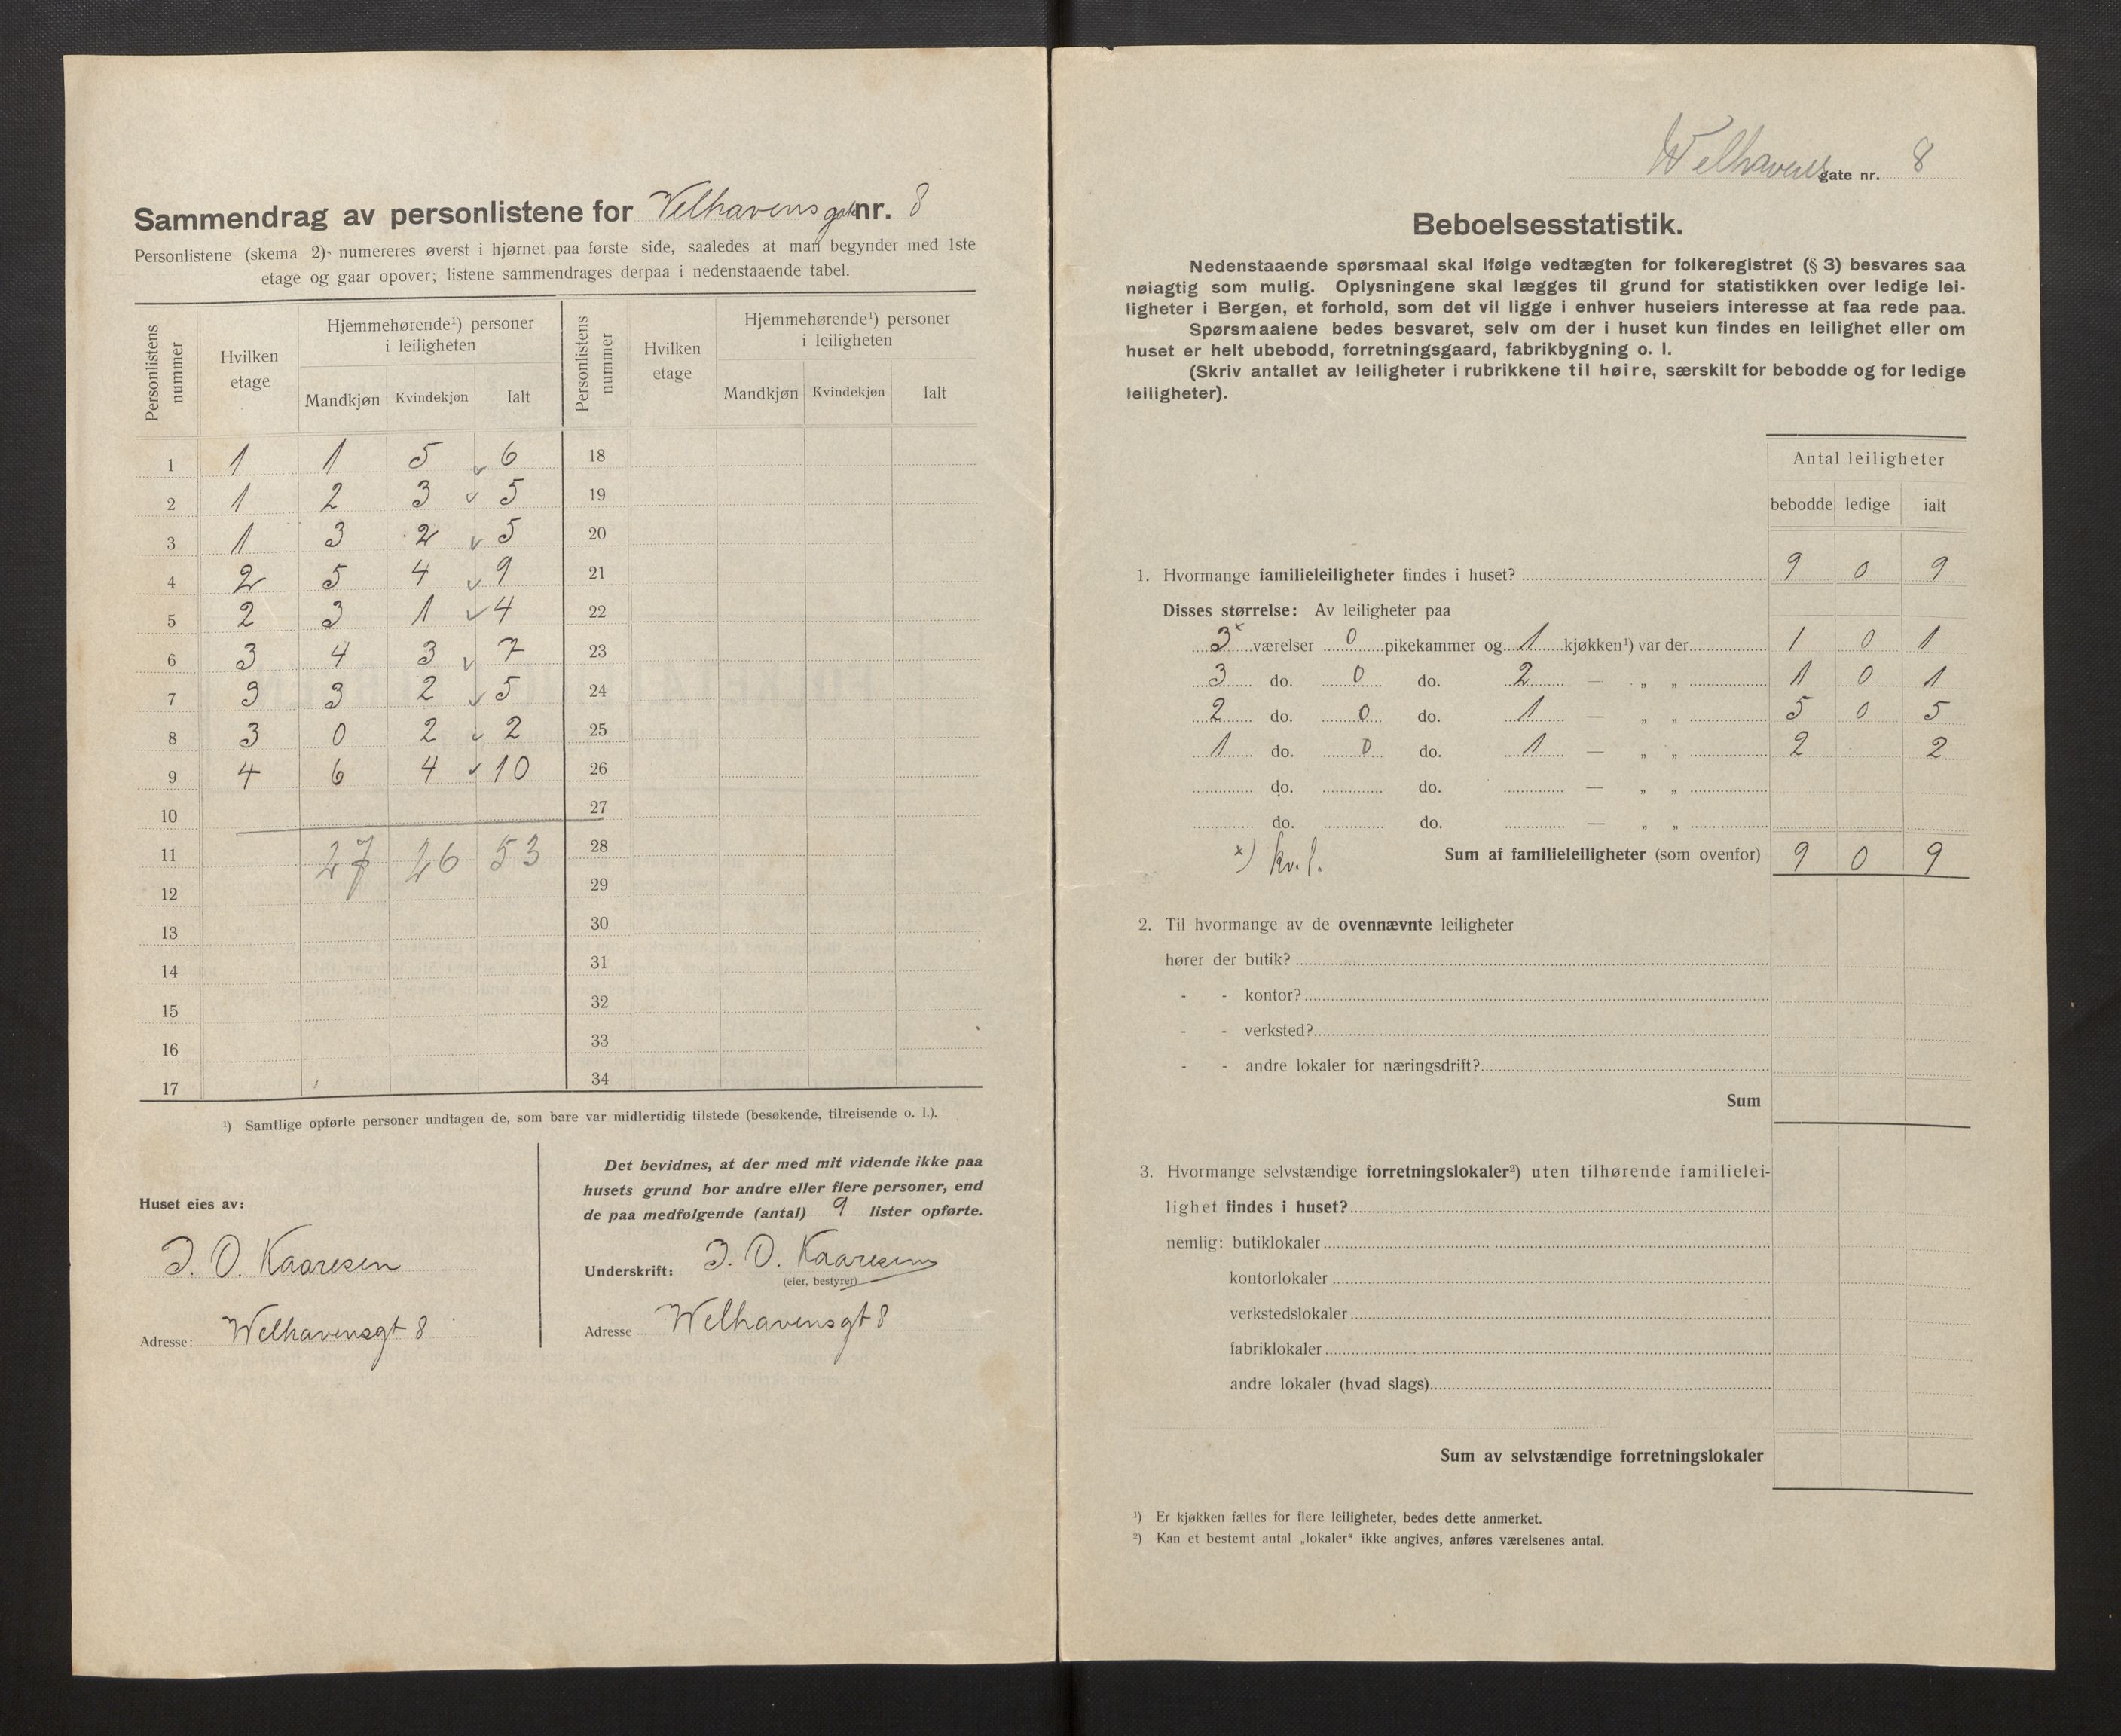 Sammendrag av personlistene for Welhavens gate nr. 8
Personlistene (skema 2) numereres øverst i hjørnet paa første side, saaledes at man begynder med 1ste
etage og gaar opover; listene sammendrages derpaa i nedenstaaende tabel.
Personlistens nummer
Hvilken etage
Hjemmehørende¹) personer i leiligheten
Mandkjøn Kvindekjøn Ialt
Personlistens nummer
Hvilken etage
Hjemmehørende¹) personer i leiligheten
Mandkjøn Kvindekjøn Ialt
1 1 1 5 6 18
2 1 2 3 5 19
3 1 3 2 5 20
4 2 5 4 9 21
5 2 3 1 4 22
6 3 4 3 7 23
7 3 3 2 5 24
8 3 0 2 2 25
9 4 6 4 10 26
10 27
11 27 26 53 28
12 29
13 30
14 31
15 32
16 33
17 34
¹) Samtlige opførte personer undtagen de, som bare var midlertidig tilstede (besøkende, tilreisende o. l.).
Huset eies av:
J. O. Kaaresen
Adresse: Welhavensgt 8
Det bevidnes, at der med mit vidende ikke paa
husets grund bor andre eller flere personer, end
de paa medfølgende (antal) 9 lister opførte.
Underskrift: J. O. Kaaresen
(eier, bestyrer)
Adresse Welhavensgt 8
Welhavens gate nr. 8
Beboelsesstatistik.
Nedenstaaende spørsmaal skal ifølge vedtægten for folkeregistret (§ 3) besvares saa
nøiagtig som mulig. Oplysningene skal lægges til grund for statistikken over ledige lei-
ligheter i Bergen, et forhold, som det vil ligge i enhver huseiers interesse at faa rede paa.
Spørsmaalene bedes besvaret, selv om der i huset kun findes en leilighet eller om
huset er helt ubebodd, forretningsgaard, fabrikbygning o. l.
(Skriv antallet av leiligheter i rubrikkene til høire, særskilt for bebodde og for ledige
leiligheter).
Antal leiligheter
bebodde ledige ialt
1. Hvormange familieleiligheter findes i huset? 9 0 9
Disses størrelse: Av leiligheter paa
3ˣ værelser 0 pikekammer og 1 kjøkken¹) var der 1 0 1
3 do. 0 do. 2 — „ „ 1 0 1
2 do. 0 do. 1 — „ „ 5 0 5
1 do. 0 do. 1 — „ „ 2 2
do. do. — „ „
do. do. — „ „
x) kv. l. Sum af familieleiligheter (som ovenfor) 9 0 9
2. Til hvormange av de ovennævnte leiligheter
hører der butik?
- - kontor?
- - verksted?
- - andre lokaler for næringsdrift?
Sum
3. Hvormange selvstændige forretningslokaler²) uten tilhørende familielei-
lighet findes i huset?
nemlig: butiklokaler
kontorlokaler
verkstedslokaler
fabriklokaler
andre lokaler (hvad slags)
Sum av selvstændige forretningslokaler
¹) Er kjøkken fælles for flere leiligheter, bedes dette anmerket.
²) Kan et bestemt antal „lokaler“ ikke angives, anføres værelsenes antal.